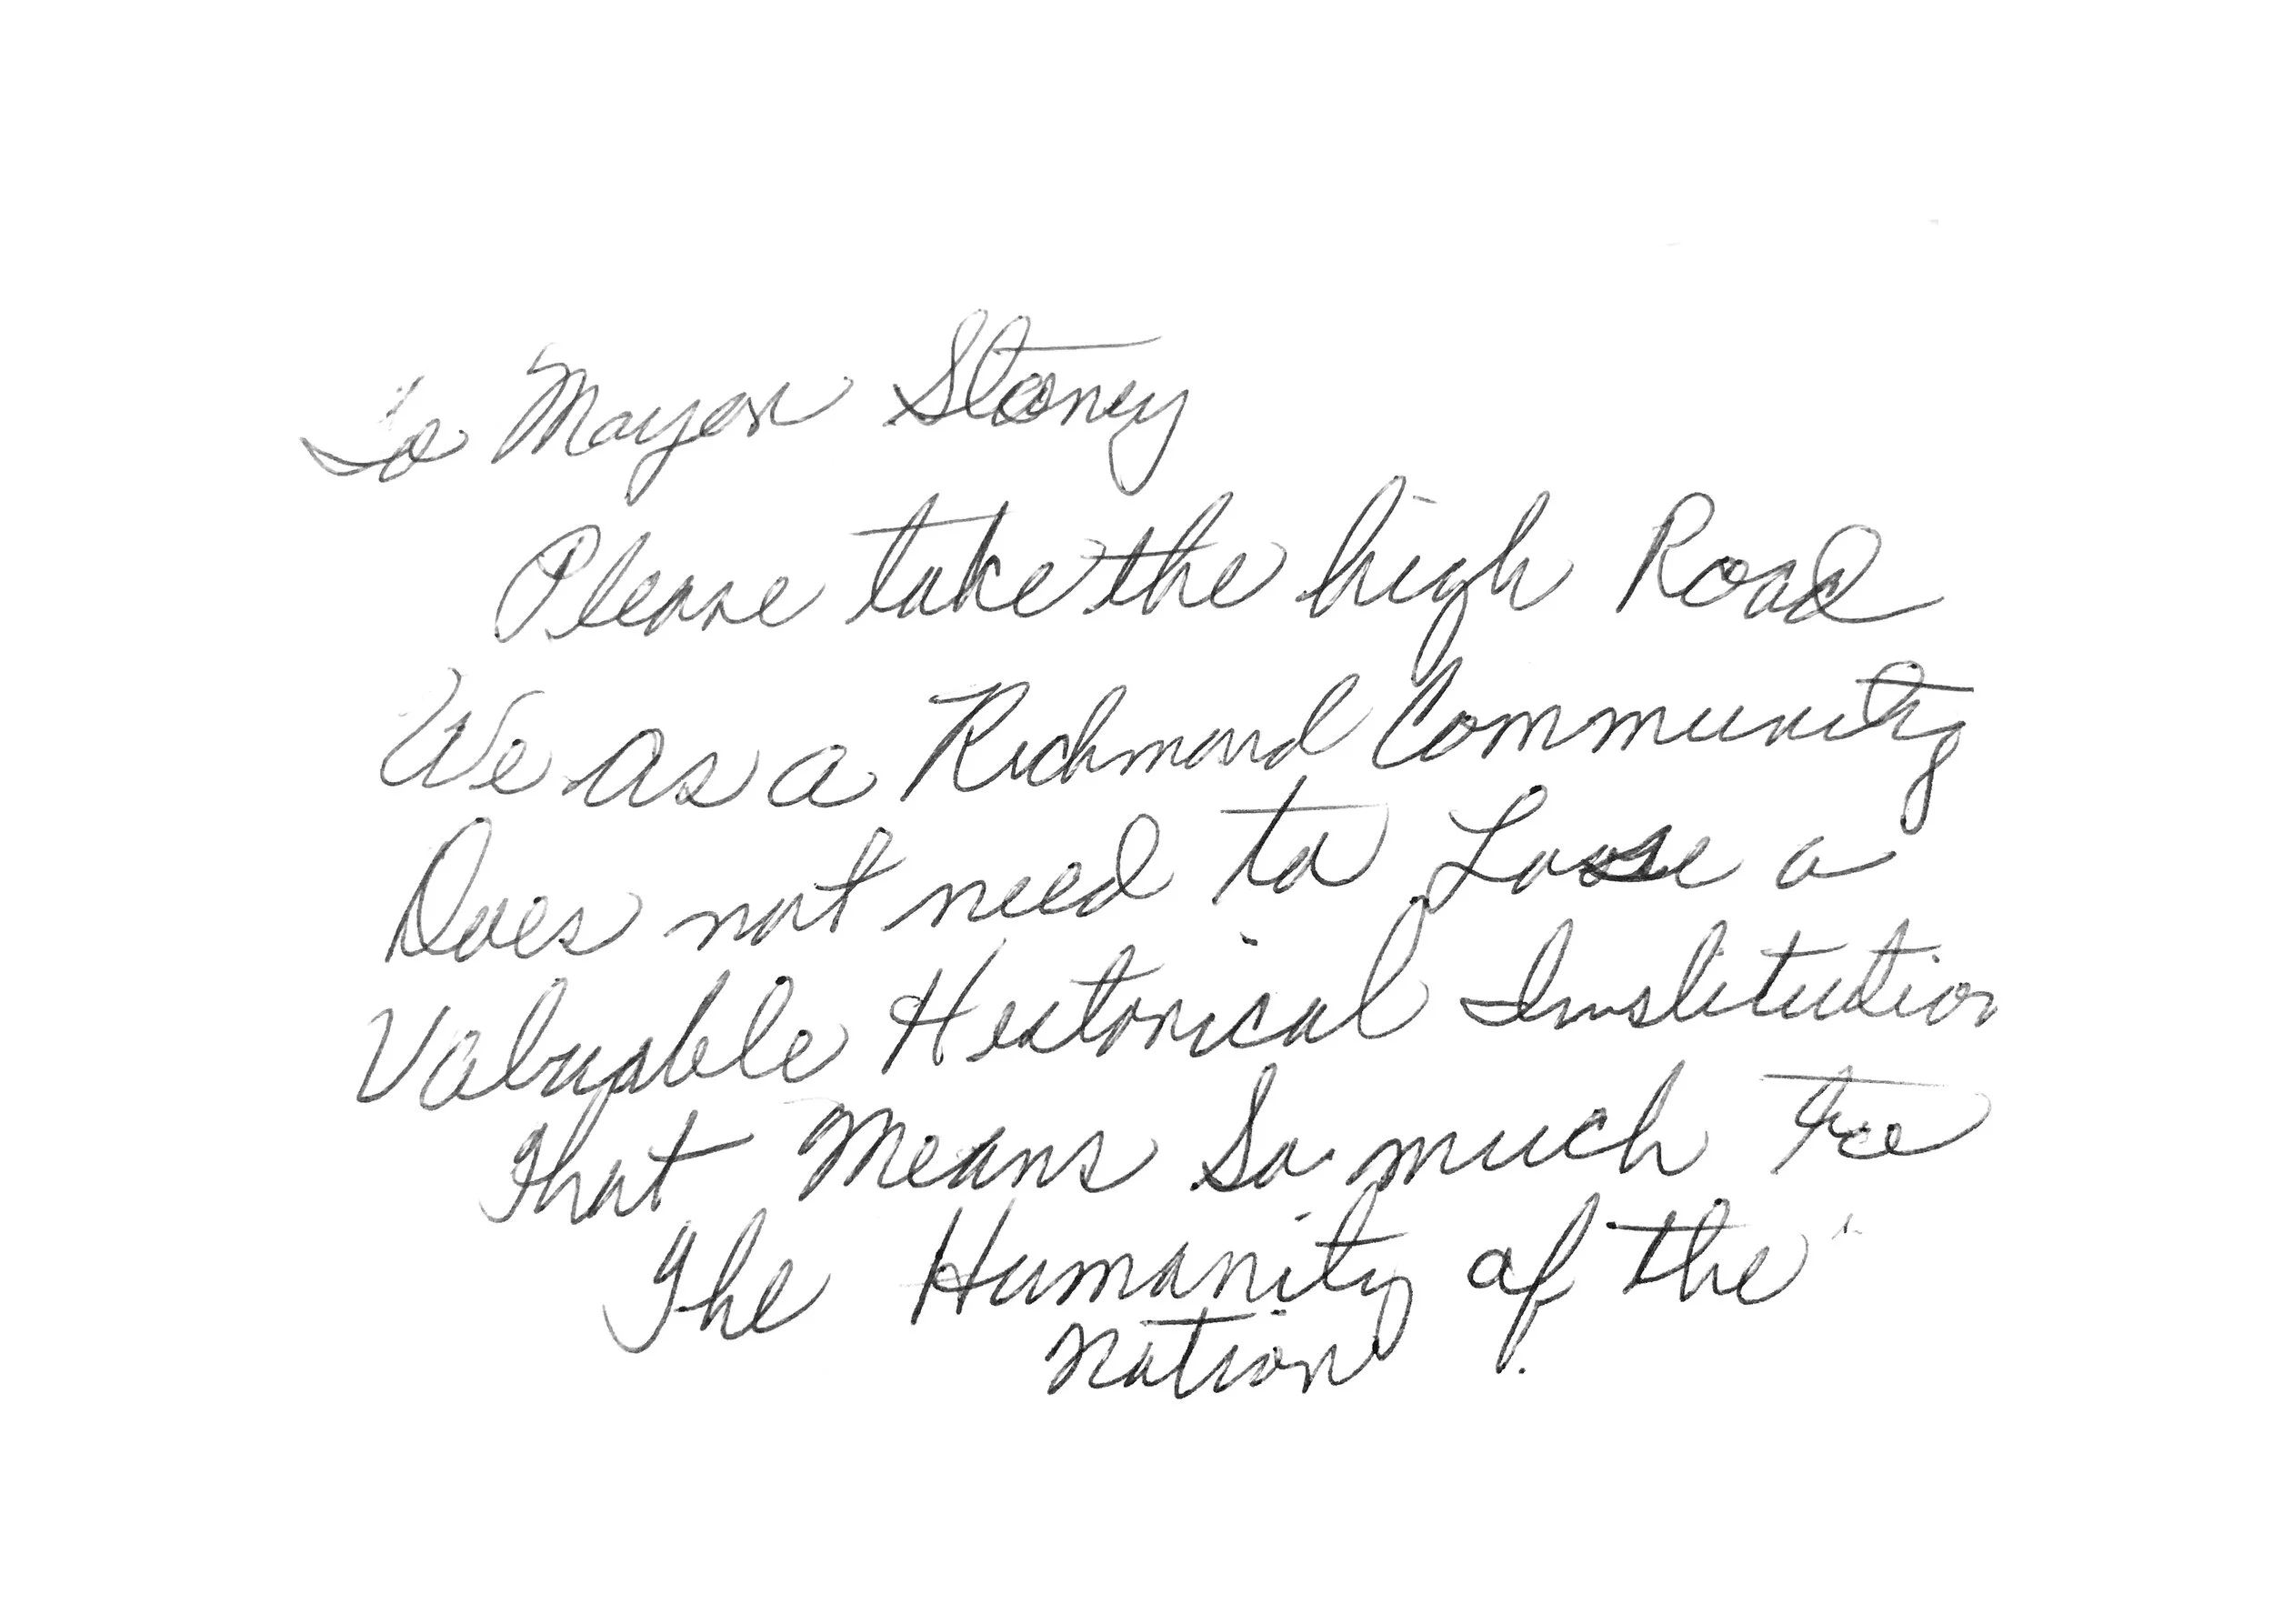 To Mayor Stoney
Please take the high Road
We as a Richmond Community
Does not need to Loose a
Valuable Historical Institution
that Means So much to
The Humanity of the
Nation.